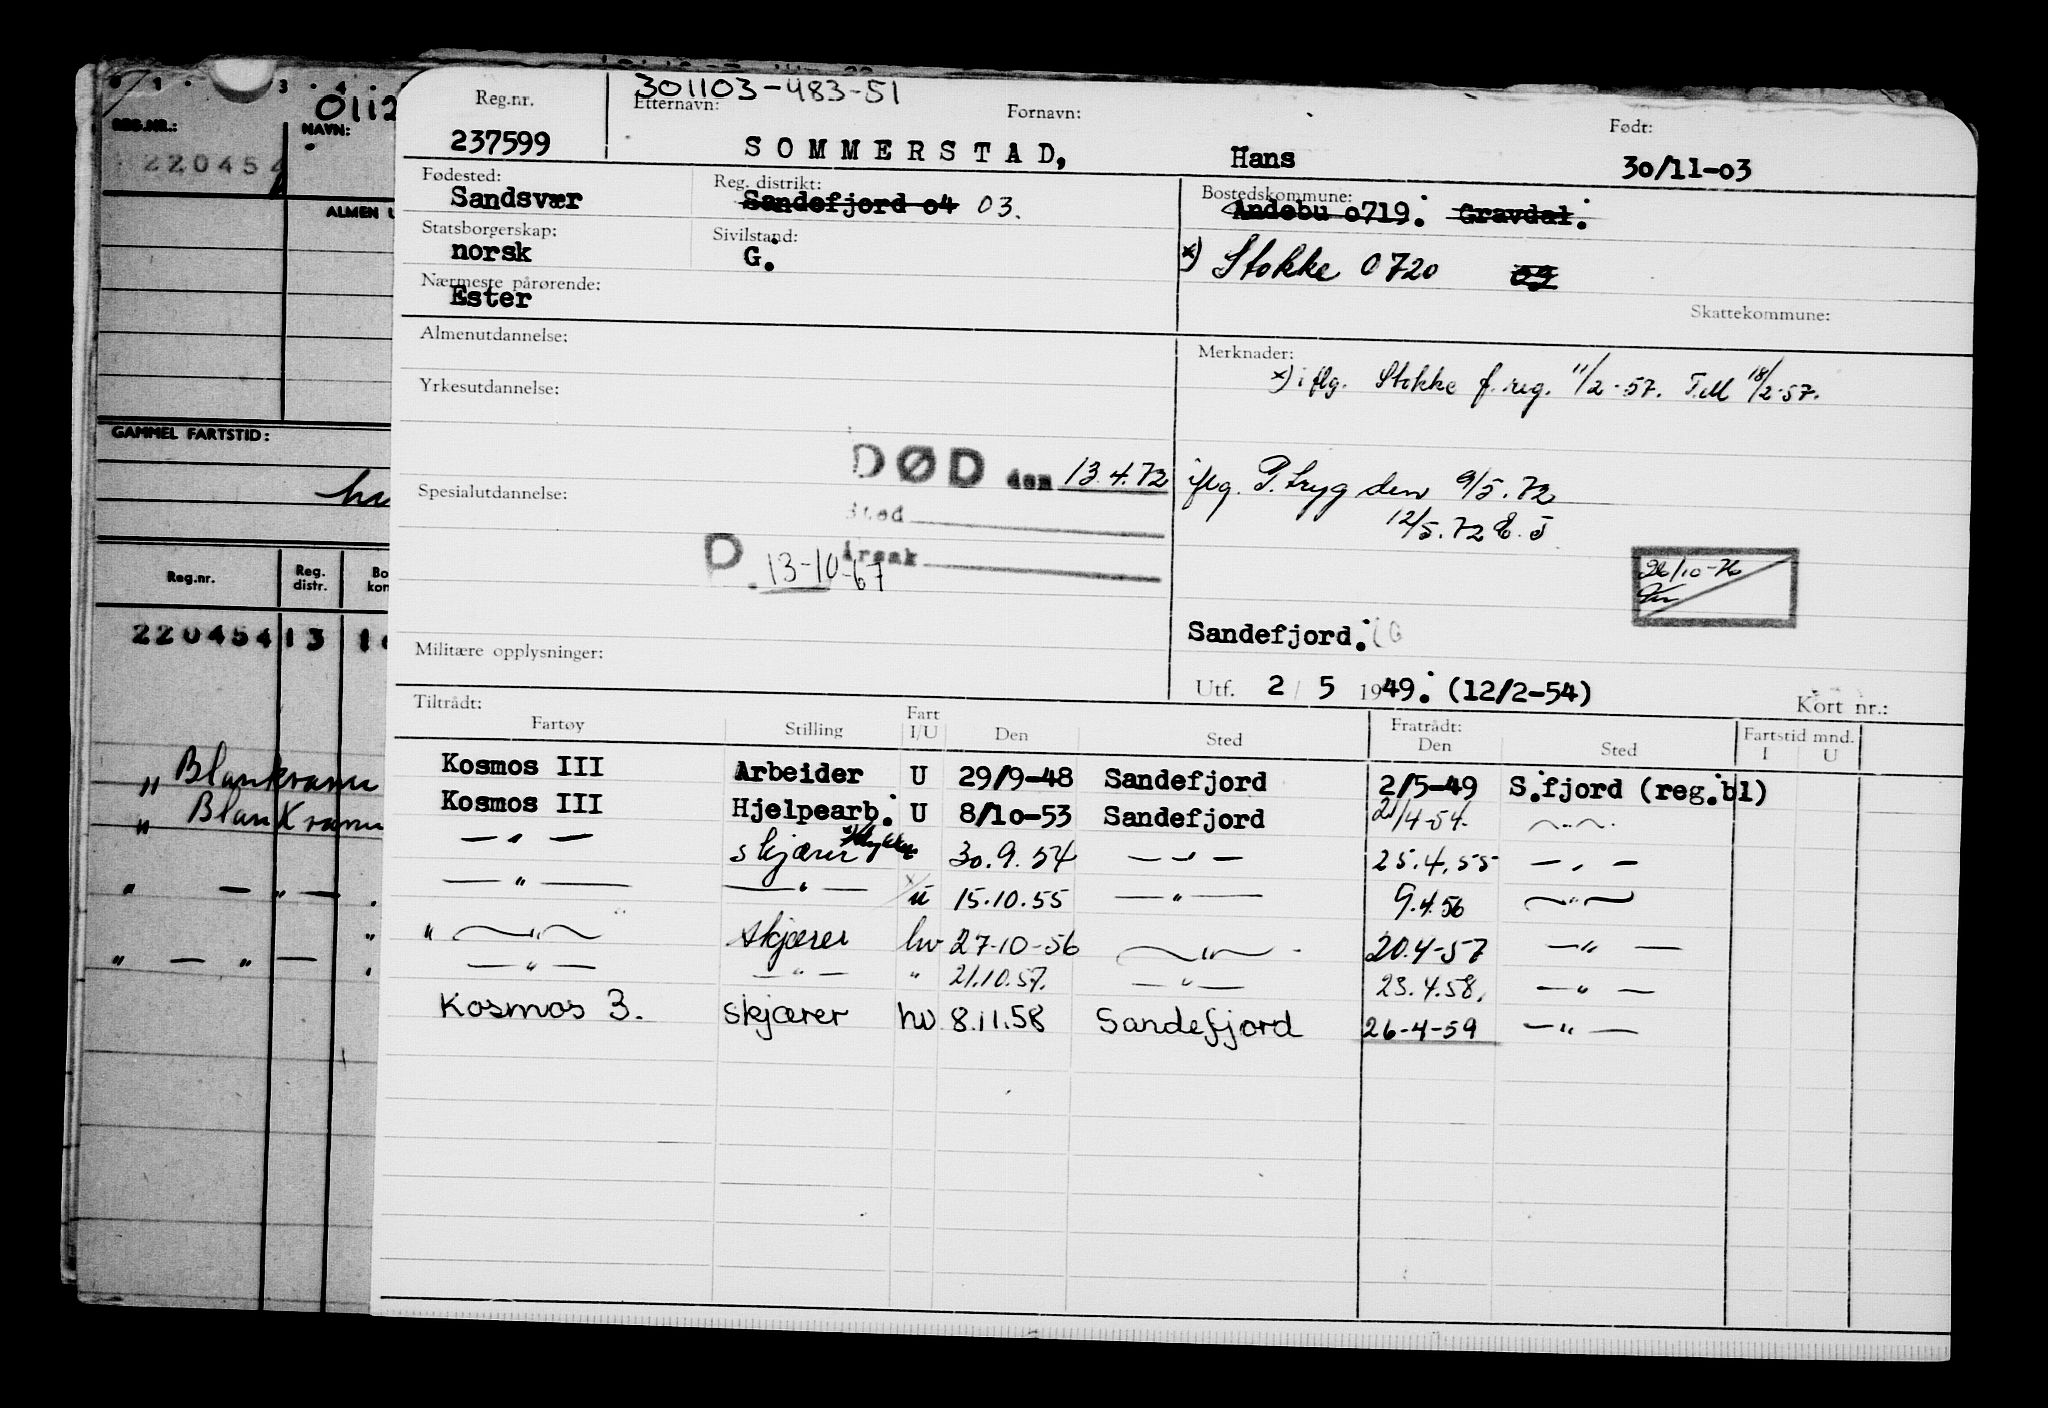 301103-483-51
Reg.nr. Etternavn: Fornavn: Født:
237599 SOMMERSTAD, Hans 30/11-03
Fødested: Reg. distrikt: Bostedskommune:
Sandsvær Sandefjord 04 03. Andebu 0719. Gravdal.
Statsborgerskap: Sivilstand:
norsk G. x) Stokke 0720 09
Nærmeste pårørende:
Ester
Skattekommune:
Almenutdannelse: Merknader:
x) iflg. Stokke f.reg. 11/2-57. T.M 18/2-57.
Yrkesutdannelse:
DØD den 13.4.72 iflg. P.tryg den 9/5.72
Spesialutdannelse: Sted 12/5.72 E.J
D. 13-10-67 Årsak
26/10-76
Sandefjord.
Militære opplysninger:
Utf. 2/5 1949. (12/2-54) Kort nr.:
Tiltrådt: Fratrådt: Fartstid mnd.
Fartøy Stilling Fart I/U Den Sted Den Sted I U
Kosmos III Arbeider U 29/9-48 Sandefjord 2/5-49 S.fjord (reg.bl)
Kosmos III Hjelpearb. U 8/10-53 Sandefjord 21/4-54. —"—
—"— skjærer 30.9.54 —"— 25.4.55 —"—
—"— —"— U 15.10.55 —"— 9.4.56 —"—
" —"— skjærer hv 27-10-56 —"— 20.4-57 —"—
—"— —"— " 21.10.57. —"— 23.4.58. —"—
Kosmos 3. skjærer hv 8.11.58 Sandefjord 26-4-59 —"—
0112
REG.NR.: NAVN:
220454
ALMEN U
GAMMEL FARTSTID:
Reg.nr. Reg. distr. Bo kom
220454 13
" Blankvann
" Blankvann
" — " —
" — " —